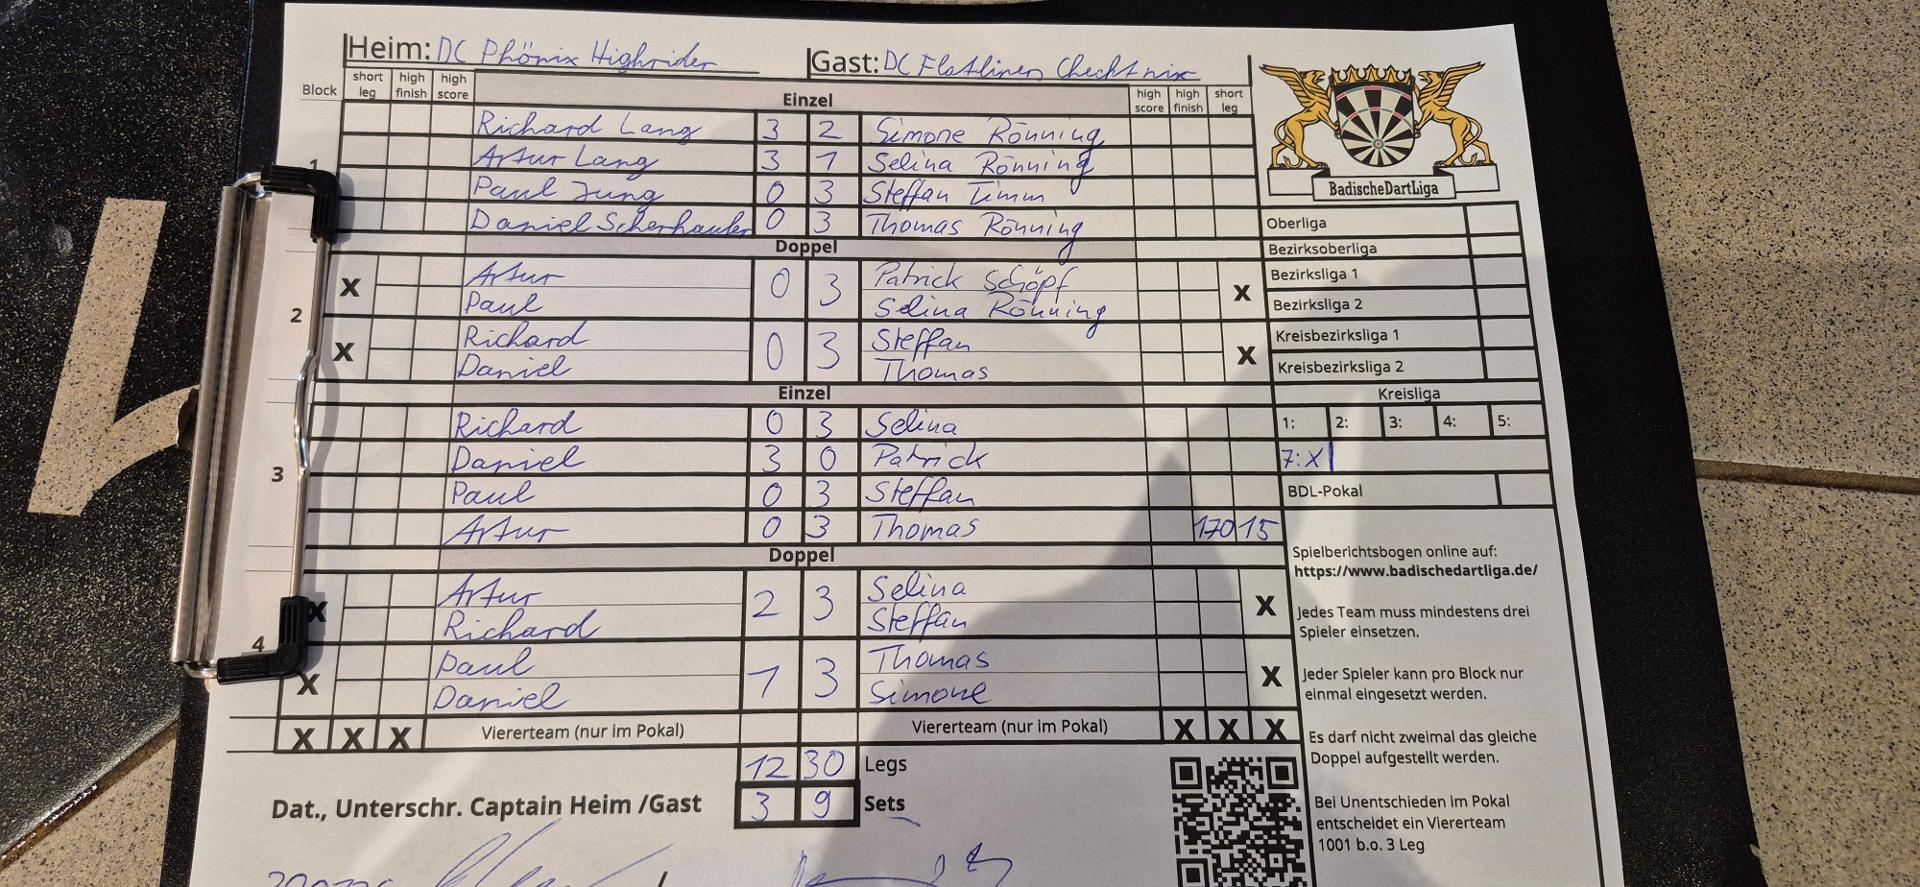 Heim: DC Phönix Highrider Gast: DC Flatliners Checkt nix
Block short leg high finish high score Einzel high score high finish short leg
1 Richard Lang 3 2 Simone Rönning
Artur Lang 3 1 Selina Rönning
Paul Jung 0 3 Steffan Timm
Daniel 0 3 Thomas Rönning
Doppel
2 X Artur 0 3 Patrick Schöpf X
Paul Selina Rönning
X Richard 0 3 Steffan X
Daniel Thomas
Einzel
3 Richard 0 3 Selina
Daniel 3 0 Patrick
Paul 0 3 Steffan
Artur 0 3 Thomas 170 15
Doppel
4 X Artur 2 3 Selina X
Richard Steffan
X Paul 1 3 Thomas X
Daniel Simone
X X X Viererteam (nur im Pokal) Viererteam (nur im Pokal) X X X
12 30 Legs
Dat., Unterschr. Captain Heim /Gast 3 9 Sets
BadischeDartLiga
Oberliga
Bezirksoberliga
Bezirksliga 1
Bezirksliga 2
Kreisbezirksliga 1
Kreisbezirksliga 2
Kreisliga
1: 2: 3: 4: 5:
7: X
BDL-Pokal
Spielberichtsbogen online auf:
https://www.badischedartliga.de/
Jedes Team muss mindestens drei
Spieler einsetzen.
Jeder Spieler kann pro Block nur
einmal eingesetzt werden.
Es darf nicht zweimal das gleiche
Doppel aufgestellt werden.
Bei Unentschieden im Pokal
entscheidet ein Viererteam
1001 b.o. 3 Leg